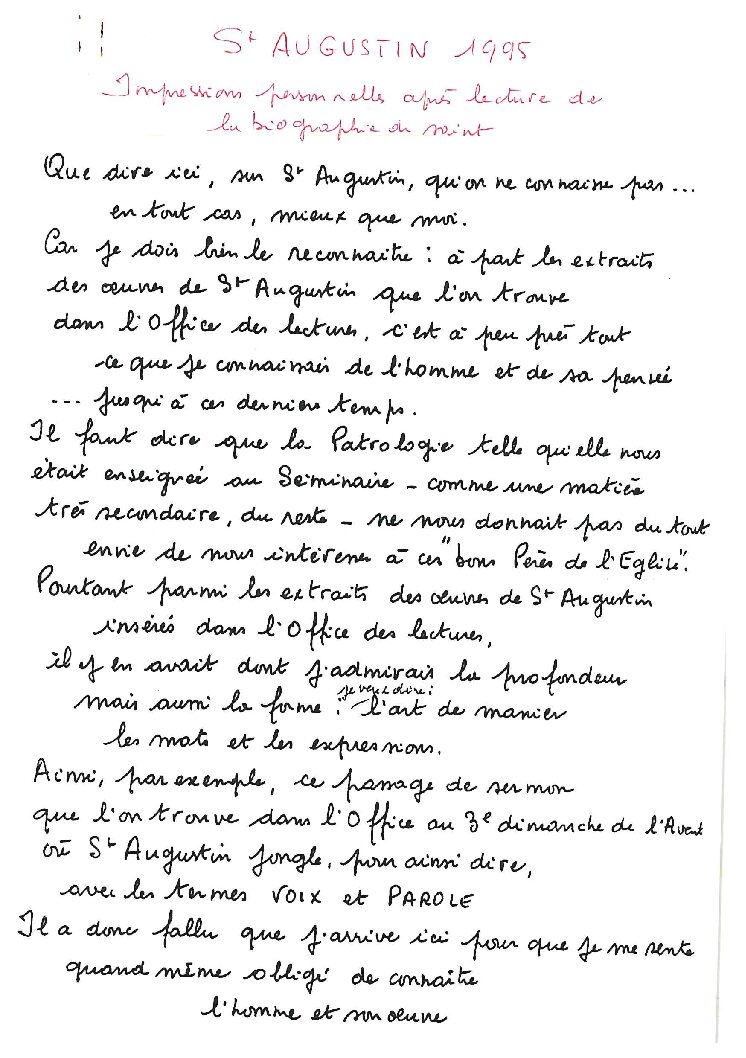 St AUGUSTIN 1995
Impressions personnelles après lecture de
la biographie du saint
Que dire ici, sur St Augustin, qu'on ne connaisse pas...
en tout cas, mieux que moi.
Car je dois bien le reconnaitre : à part les extraits
des œuvres de St Augustin que l'on trouve
dans l'Office des lectures, c'est à peu près tout
ce que je connaissais de l'homme et de sa pensée
... jusqu'à ces derniers temps.
Il faut dire que la Patrologie telle qu'elle nous
était enseignée au Séminaire - comme une matière
très secondaire, du reste - ne nous donnait pas du tout
envie de nous intéresser à ces "bons Pères de l'Eglise".
Pourtant parmi les extraits des œuvres de St Augustin
insérés dans l'Office des lectures,
il y en avait dont j'admirais la profondeur
mais aussi la forme : je veux dire : l'art de manier
les mots et les expressions.
Ainsi, par exemple, ce passage de sermon
que l'on trouve dans l'Office au 3e dimanche de l'Avent
où St Augustin jongle, pour ainsi dire,
avec les termes VOIX et PAROLE
Il a donc fallu que j'arrive ici pour que je me sente
quand même obligé de connaître
l'homme et son œuvre